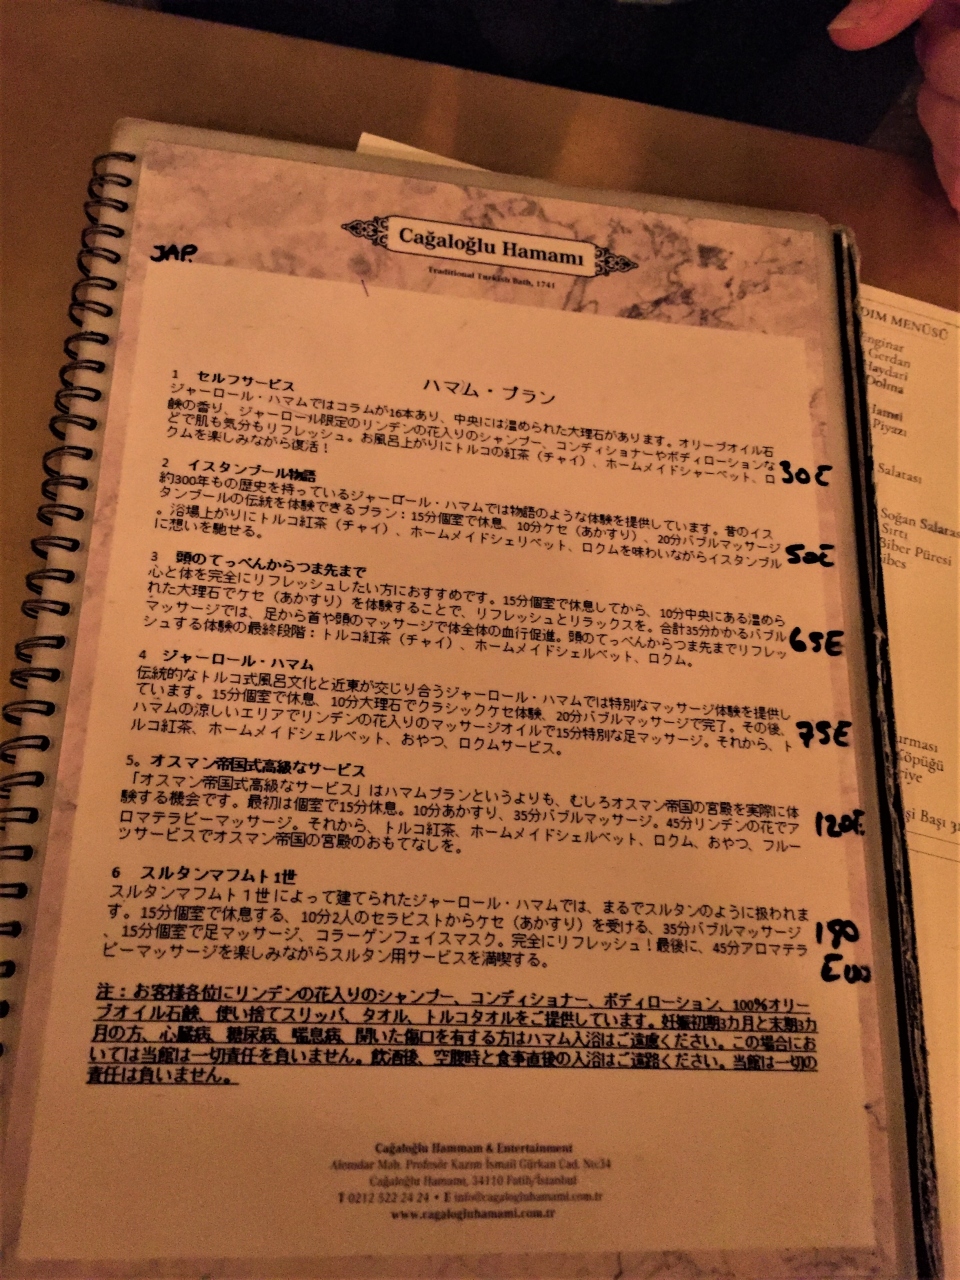 JAP.
Cağaloğlu Hamamı
Traditional Turkish Bath, 1741
ハマム・プラン
1 セルフサービス
ジャーロール・ハマムではコラムが16本あり、中央には温められた大理石があります。オリーブオイル石
鹸の香り、ジャーロール限定のリンデンの花入りのシャンプー、コンディショナーやボディローションな
どで肌も気分もリフレッシュ。お風呂上がりにトルコの紅茶（チャイ）、ホームメイドシャーベット、ロ
クムを楽しみながら復活！
30E
2 イスタンブール物語
約300年もの歴史を持っているジャーロール・ハマムでは物語のような体験を提供しています。昔のイス
タンブールの伝統を体験できるプラン：15分個室で休息、10分ケセ（あかすり）、20分バブルマッサージ
。浴場上がりにトルコ紅茶（チャイ）、ホームメイドシェリベット、ロクムを味わいながらイスタンブル
に想いを馳せる。
50E
3 頭のてっぺんからつま先まで
心と体を完全にリフレッシュしたい方におすすめです。15分個室で休息してから、10分中央にある温めら
れた大理石でケセ（あかすり）を体験することで、リフレッシュとリラックスを。合計35分かかるバブル
マッサージでは、足から首や頭のマッサージで体全体の血行促進。頭のてっぺんからつま先までリフレッ
シュする体験の最終段階：トルコ紅茶（チャイ）、ホームメイドシェルベット、ロクム。
65E
4 ジャーロール・ハマム
伝統的なトルコ式風呂文化と近東が交じり合うジャーロール・ハマムでは特別なマッサージ体験を提供し
ています。15分個室で休息、10分大理石でクラシックケセ体験、20分バブルマッサージで完了。その後、
ハマムの涼しいエリアでリンデンの花入りのマッサージオイルで15分特別な足マッサージ。それから、ト
ルコ紅茶、ホームメイドシェルベット、おやつ、ロクムサービス。
75E
5。オスマン帝国式高級なサービス
「オスマン帝国式高級なサービス」はハマムプランというよりも、むしろオスマン帝国の宮殿を実際に体
験する機会です。最初は個室で15分休息。10分あかすり、35分バブルマッサージ。45分リンデンの花でア
ロマテラピーマッサージ。それから、トルコ紅茶、ホームメイドシェルベット、ロクム、おやつ、フルー
ツサービスでオスマン帝国の宮殿のおもてなしを。
120E.
6 スルタンマフムト1世
スルタンマフムト１世によって建てられたジャーロール・ハマムでは、まるでスルタンのように扱われま
す。15分個室で休息する、10分2人のセラピストからケセ（あかすり）を受ける、35分バブルマッサージ
、15分個室で足マッサージ、コラーゲンフェイスマスク。完全にリフレッシュ！最後に、45分アロマテラ
ピーマッサージを楽しみながらスルタン用サービスを満喫する。
190
注：お客様各位にリンデンの花入りのシャンプー、コンディショナー、ボディローション、100%オリー
ブオイル石鹸、使い捨てスリッパ、タオル、トルコタオルをご提供しています。妊娠初期3カ月と末期3カ
月の方、心臓病、糖尿病、喘息病、開いた傷口を有する方はハマム入浴はご遠慮ください。この場合にお
いては当館は一切責任を負いません。飲酒後、空腹時と食事直後の入浴はご遠路ください。当館は一切の
責任は負いません。
Cağaloğlu Hammam & Entertainment
Alemdar Mah. Profesör Kazım İsmail Gürkan Cad. No:34
Cağaloğlu Hamamı, 34110 Fatih/İstanbul
T 0212 522 24 24 • E info@cagalogluhamami.com.tr
www.cagalogluhamami.com.tr
DIM MENÜSÜ
Enginar
Gerdan
Haydari
Dolma
Piyazı
Salatası
Soğan Salatas
Sırtı
Biber Püresi
Köpüğü
şi Başı